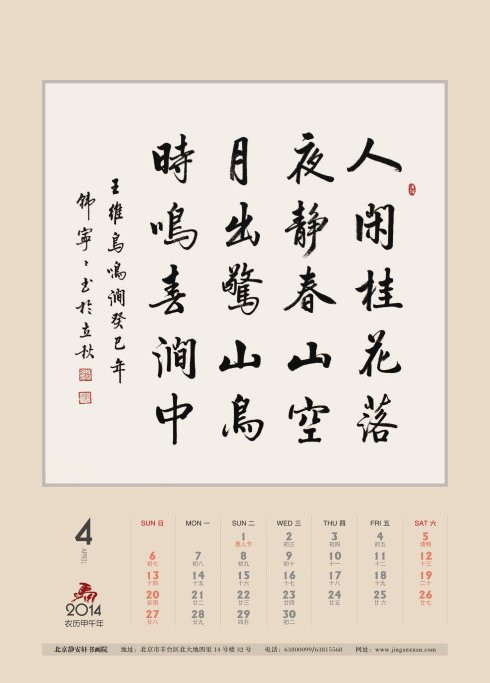 人閑桂花落
夜静春山空
月出驚山鳥
時鳴春澗中
王維鳥鳴澗癸巳年
韩寧寧书於立秋
4
APRIL
SUN 日 MON 一 SUN 二 WED 三 THU 四 FRI 五 SAT 六
1 2 3 4 5
愚人节 初三 初四 初五 清明
6 7 8 9 10 11 12
初七 初八 初九 初十 十一 十二 十三
13 14 15 16 17 18 19
十四 十五 十六 十七 十八 十九 二十
20 21 22 23 24 25 26
谷雨 廿二 廿三 廿四 廿五 廿六 廿七
27 28 29 30
廿八 廿九 四月 初二
2014
农历甲午年
北京静安轩书画院 地址：北京市丰台区北大地四里 14 号楼 32 号 电话：63800099/63815568 网址：www.jinganxuan.com